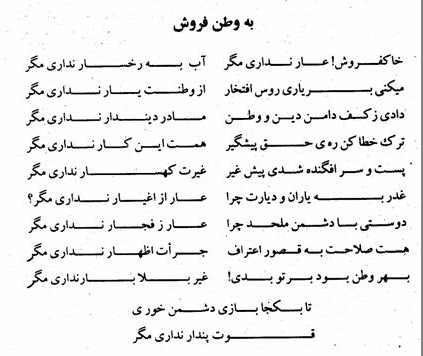 به وطن فروش
خاکفروش! عار نداری مگر آب به رخسار نداری مگر
میکنی بر یاری روس افتخار از وطنت یار نداری مگر
دادی ز کف دامن دین و وطن مادر دیندار نداری مگر
ترک خطا کن ره ی حق پیشگیر همت این کار نداری مگر
پست و سر افگنده شدی پیش غیر غیرت کهسار نداری مگر
غدر به یاران و دیارت چرا عار از اغیار نداری مگر؟
دوستی با دشمن ملحد چرا عار ز فجار نداری مگر
هست صلاحت به قصور اعتراف جرأت اظهار نداری مگر
بهر وطن بود بر تو بدی! غیر بلا بار نداری مگر
تا بکجا بازی دشمن خوری
قوت پندار نداری مگر